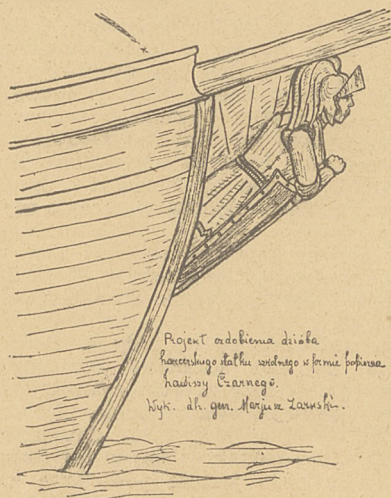 Projekt ozdobienia dzióba
harcerskiego statku szkolnego w formie popiersia
Zawiszy Czarnego.
Wyk. dh. gen. Marjusz Zaruski.